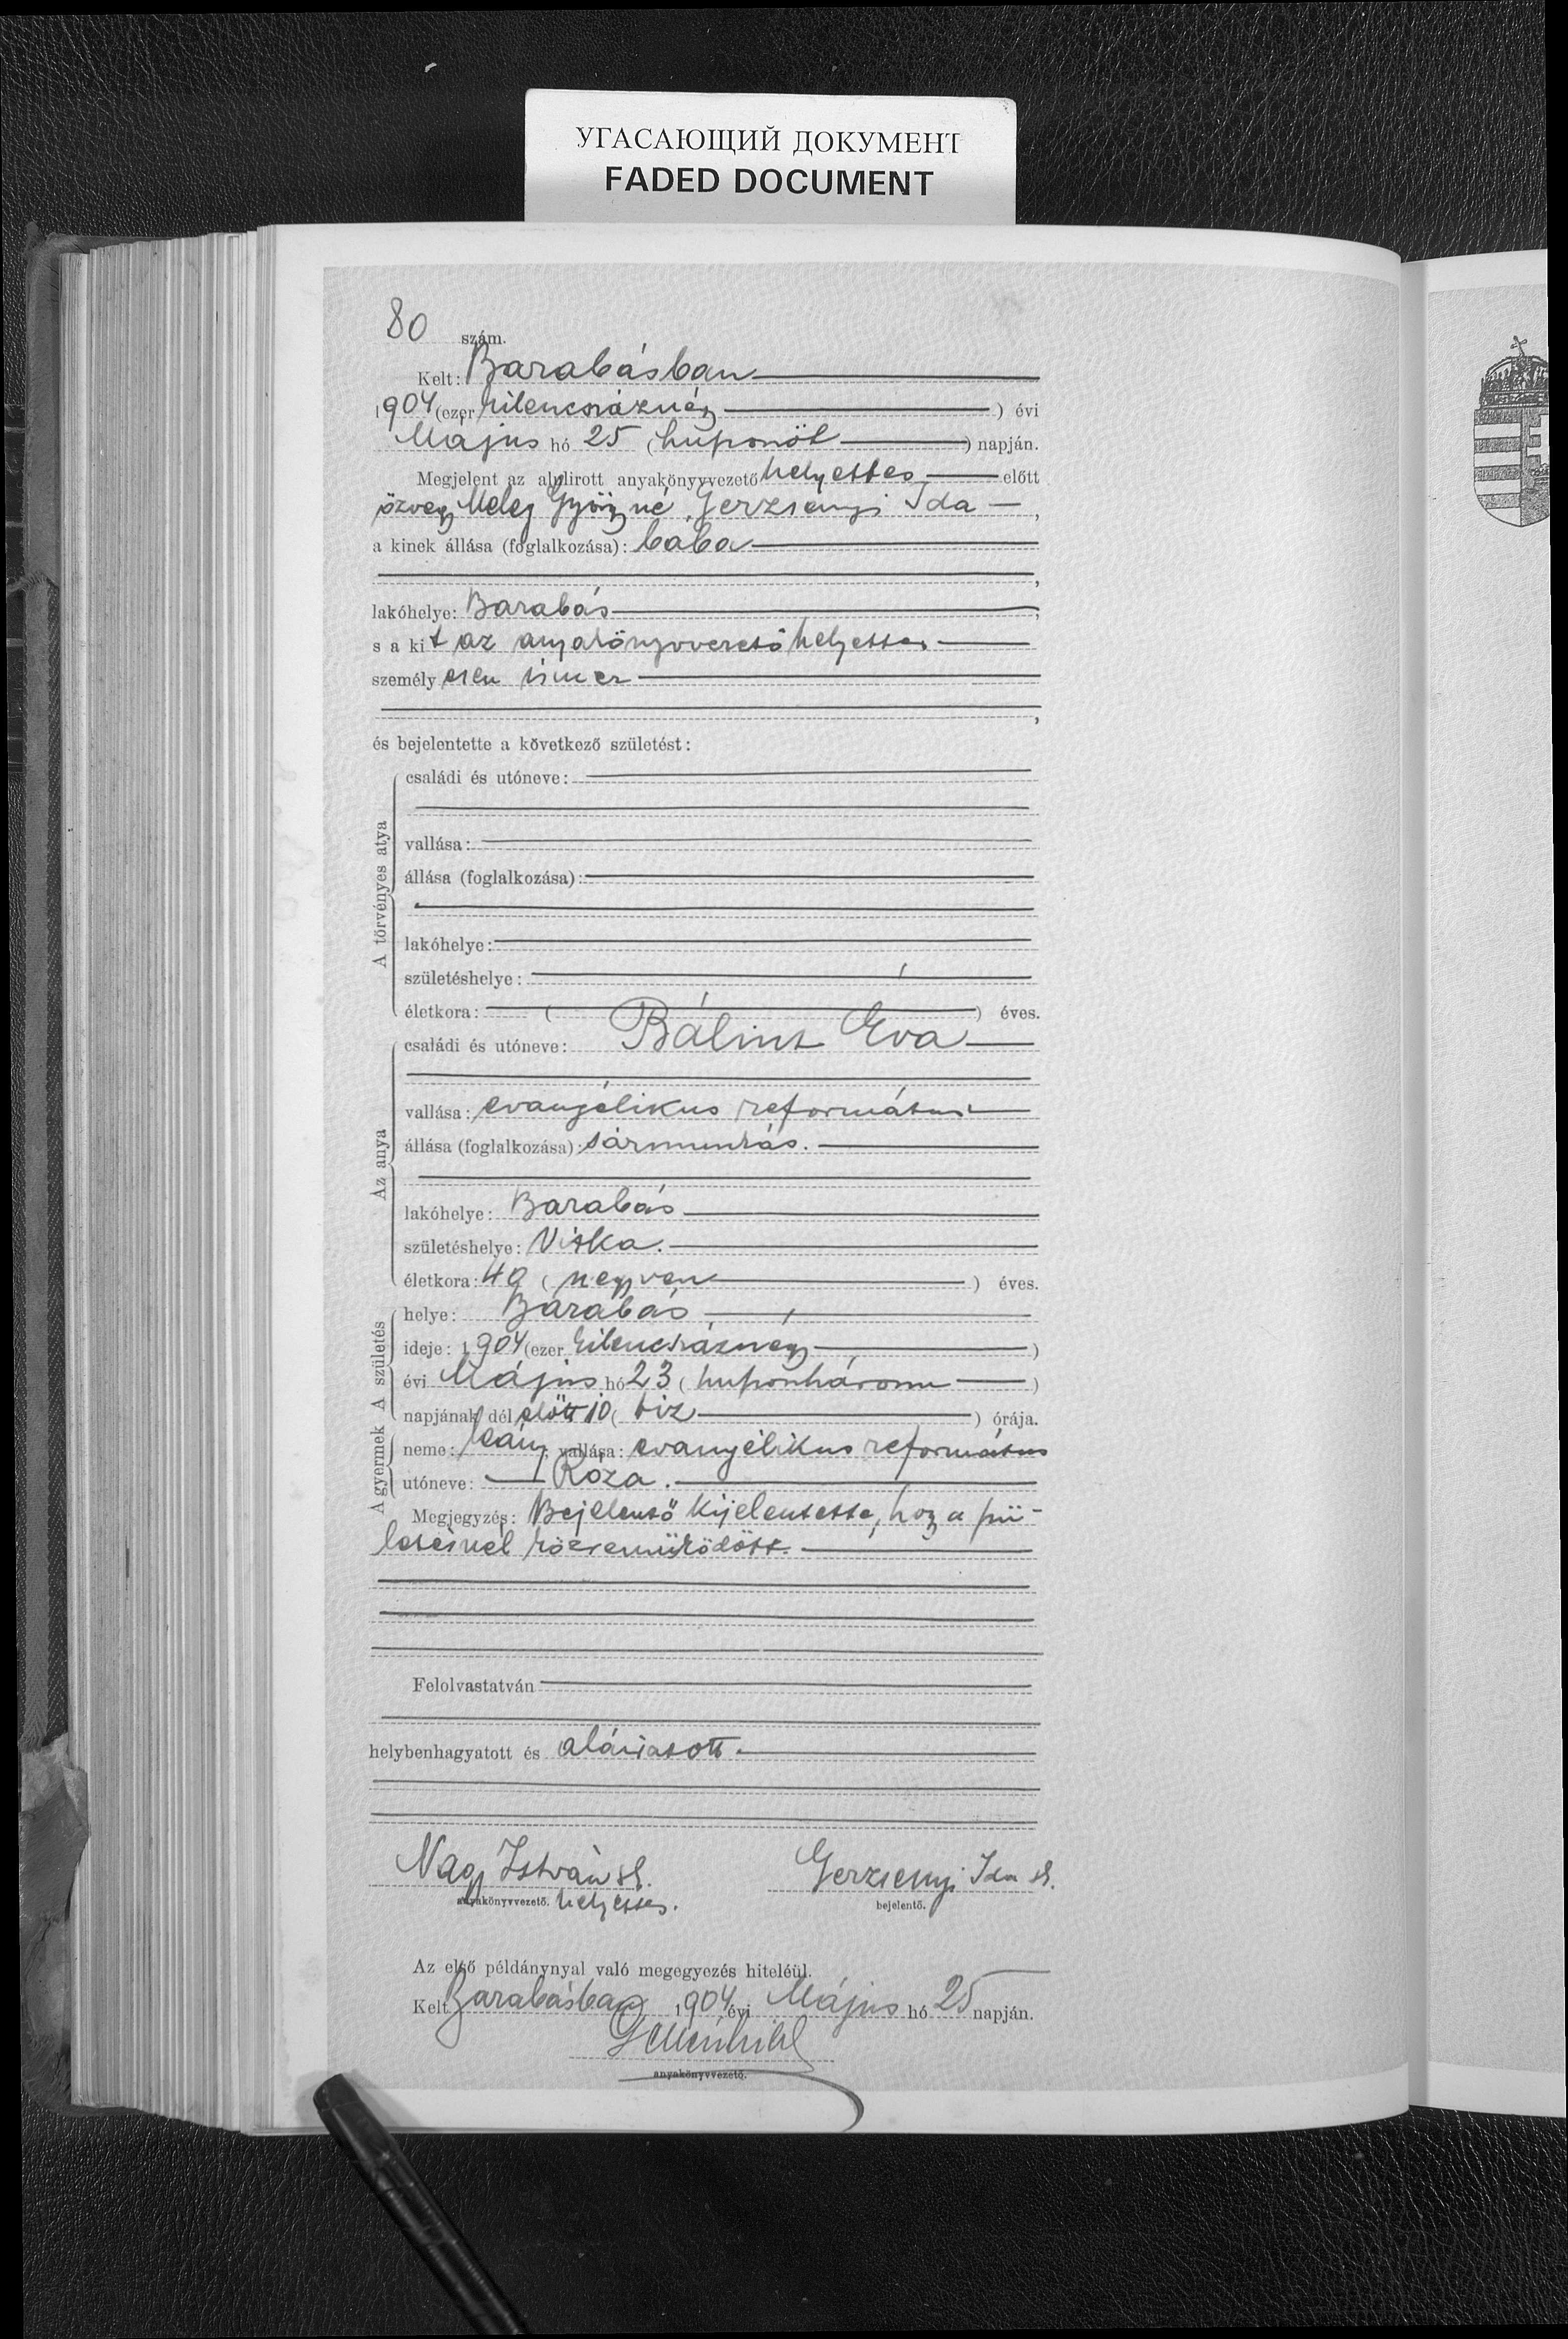 УГАСАЮЩИЙ ДОКУМЕНТ
FADED DOCUMENT
80 szám.
Kelt: Barabásban
1904 (ezer kilencszáznégy) évi
Május hó 25 (huszonöt) napján.
Megjelent az alulirott anyakönyvvezető helyettes előtt
özvegy Meleg Györgyné Gerzsenyi Ida,
a kinek állása (foglalkozása): bába
,
lakóhelye: Barabás,
s a kit az anyakönyvvezető helyettes
személyesen ismer
,
és bejelentette a következő születést:
A törvényes atya
családi és utóneve:
vallása:
állása (foglalkozása):
lakóhelye:
születéshelye:
életkora: ( ) éves.
Az anya
családi és utóneve: Bálint Éva
vallása: evangélikus református
állása (foglalkozása): sármunkás.
lakóhelye: Barabás
születéshelye: Vitka.
életkora: 40 (negyven) éves.
A születés
helye: Barabás
ideje: 1904 (ezer kilencszáznégy)
évi Május hó 23 (huszonhárom)
napjának dél előtt 10 (tiz) órája.
A gyermek
neme: leány; vallása: evangélikus református
utóneve: Róza.
Megjegyzés: Bejelentő kijelentette, hogy a szü-
letésnél közremüködött.
Felolvastatván
helybenhagyatott és aláiratott.
Nagy István sk. Gerzsenyi Ida sk.
anyakönyvvezető. helyettes. bejelentő.
Az első példánynyal való megegyezés hiteléül.
Kelt Barabásban 1904 évi Május hó 25 napján.
anyakönyvvezető.